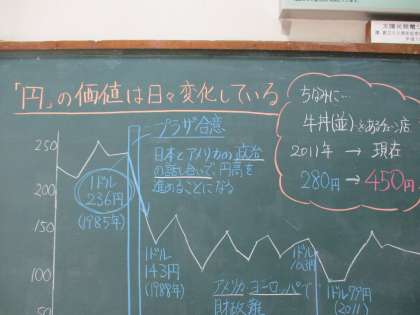 「円」の価値は日々変化している
ちなみに…
牛丼(並)
2011年 → 現在
280円 → 450円
プラザ合意
日本とアメリカの政治
の話し合いで、円高
を進めることになる
250
200
150
100
50
1ドル
236円
(1985年)
1ドル
143円
(1988年)
1ドル
アメリカ ヨーロッパで
財政難
1ドル79円
(2011)